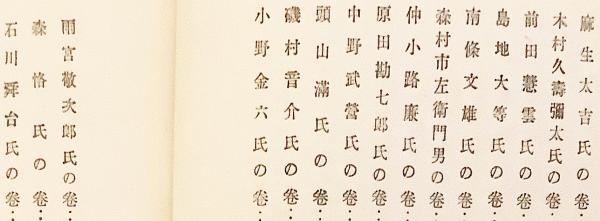 麻生太吉氏の卷‥
木村久壽彌太氏の卷‥
前田慧雲氏の卷‥
島地大等氏の卷‥
南條文雄氏の卷‥
森村市左衛門男の卷‥
仲小路廉氏の卷‥
原田勘七郎氏の卷‥
中野武營氏の卷‥
頭山滿氏の卷‥
磯村音介氏の卷‥
小野金六氏の卷‥
雨宮敬次郎氏の卷‥
森恪氏の卷‥
石川舜台氏の卷‥